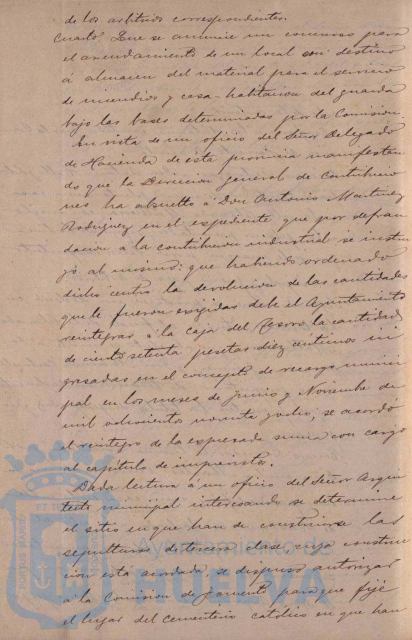 de los arbitrios correspondientes.
Cuarto Que se anuncie un concurso para
el arrendamiento de un local con destino
á almacen del material para el servicio
de incendios y casa-habitacion del guarda
bajo las bases determinadas por la Comision.
En vista de un oficio del Señor Delegado
de Hacienda de esta provincia manifestan
do que la Direccion general de Contribucio
nes ha absuelto á Don Antonio Martinez
Rodriguez en el expediente que por defrau
dacion á la contribucion industrial se instru
yó al mismo: que habiendo ordenado
dicho centro la devolucion de las cantidades
que le fueron exigidas debe el Ayuntamiento
reintegrar á la Caja del Tesoro la cantidad
de ciento setenta pesetas diez centimos in
gresadas en el concepto de recargo munici
pal en los meses de Junio y Noviembre de
mil ochocientos noventa y ocho, se acordó
el reintegro de la expresada suma con cargo
al capítulo de imprevistos.
Dada lectura á un oficio del Señor Arqui
tecto municipal interesando se determine
el sitio en que han de construirse las
sepulturas de tercera clase, cuya construc
cion esta acordada, se dispuso autorizar
á la Comision de fomento para que fije
el lugar del cementerio católico en que han
Ayuntamiento de
HUELVA